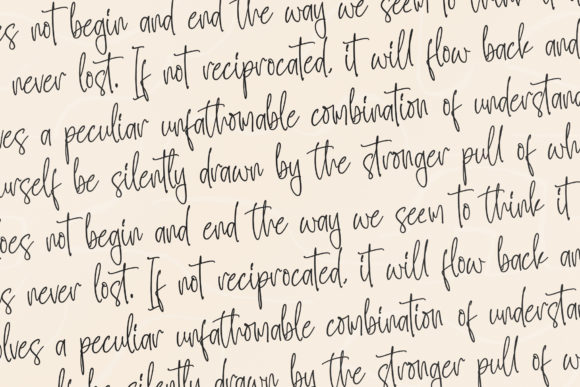 es not begin and end the way we seem to think it
never lost. If not reciprocated, it will flow back and
ves a peculiar unfathomable combination of understand
urself be silently drawn by the stronger pull of wh
oes not begin and end the way we seem to think it
s never lost. If not reciprocated, it will flow back an
olves a peculiar unfathomable combination of understa
be silently drawn by the stronger pull of w